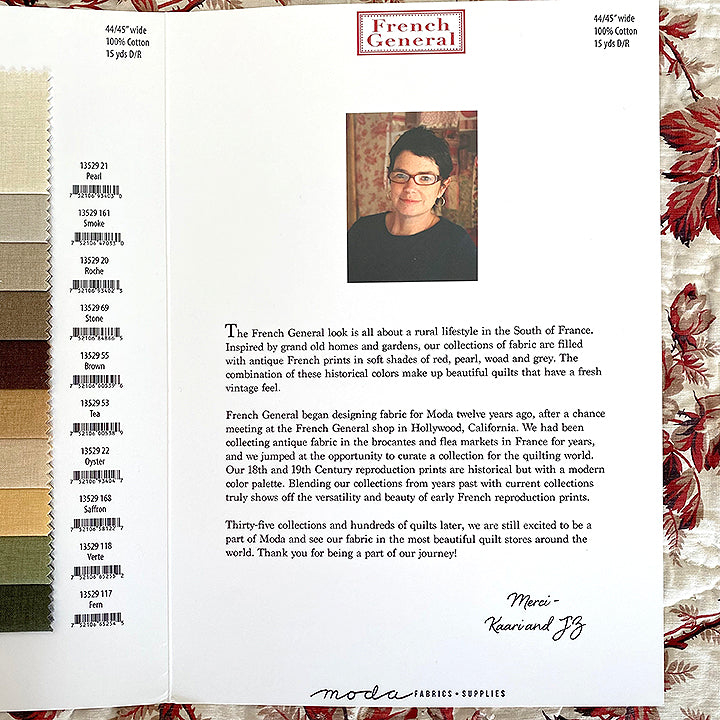 44/45" wide
100% Cotton
15 yds D/R
13529 21
Pearl
7 52106 93403 0
13529 161
Smoke
7 52106 47033 0
13529 20
Roche
7 52106 93402 3
13529 69
Stone
7 52106 84866 5
13529 55
Brown
7 52106 00559 6
13529 53
Tea
7 52106 00558 9
13529 22
Oyster
7 52106 93404 7
13529 168
Saffron
7 52106 58122 7
13529 118
Verte
7 52106 65255 2
13529 117
Fern
7 52106 65254 5
French
General
44/45" wide
100% Cotton
15 yds D/R
The French General look is all about a rural lifestyle in the South of France.
Inspired by grand old homes and gardens, our collections of fabric are filled
with antique French prints in soft shades of red, pearl, woad and grey. The
combination of these historical colors make up beautiful quilts that have a fresh
vintage feel.
French General began designing fabric for Moda twelve years ago, after a chance
meeting at the French General shop in Hollywood, California. We had been
collecting antique fabric in the brocantes and flea markets in France for years,
and we jumped at the opportunity to curate a collection for the quilting world.
Our 18th and 19th Century reproduction prints are historical but with a modern
color palette. Blending our collections from years past with current collections
truly shows off the versatility and beauty of early French reproduction prints.
Thirty-five collections and hundreds of quilts later, we are still excited to be a
part of Moda and see our fabric in the most beautiful quilt stores around the
world. Thank you for being a part of our journey!
Merci -
Kaari and JZ
moda FABRICS + SUPPLIES